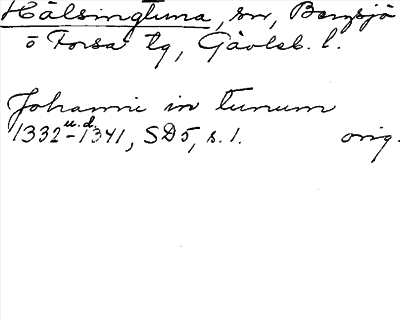 Hälsingtuna, sn, Bergsjö
o Forsa tg, Gävleb. l.
Johanni in tunum
1332 u.d. -1341, SD5, s. 1. orig.